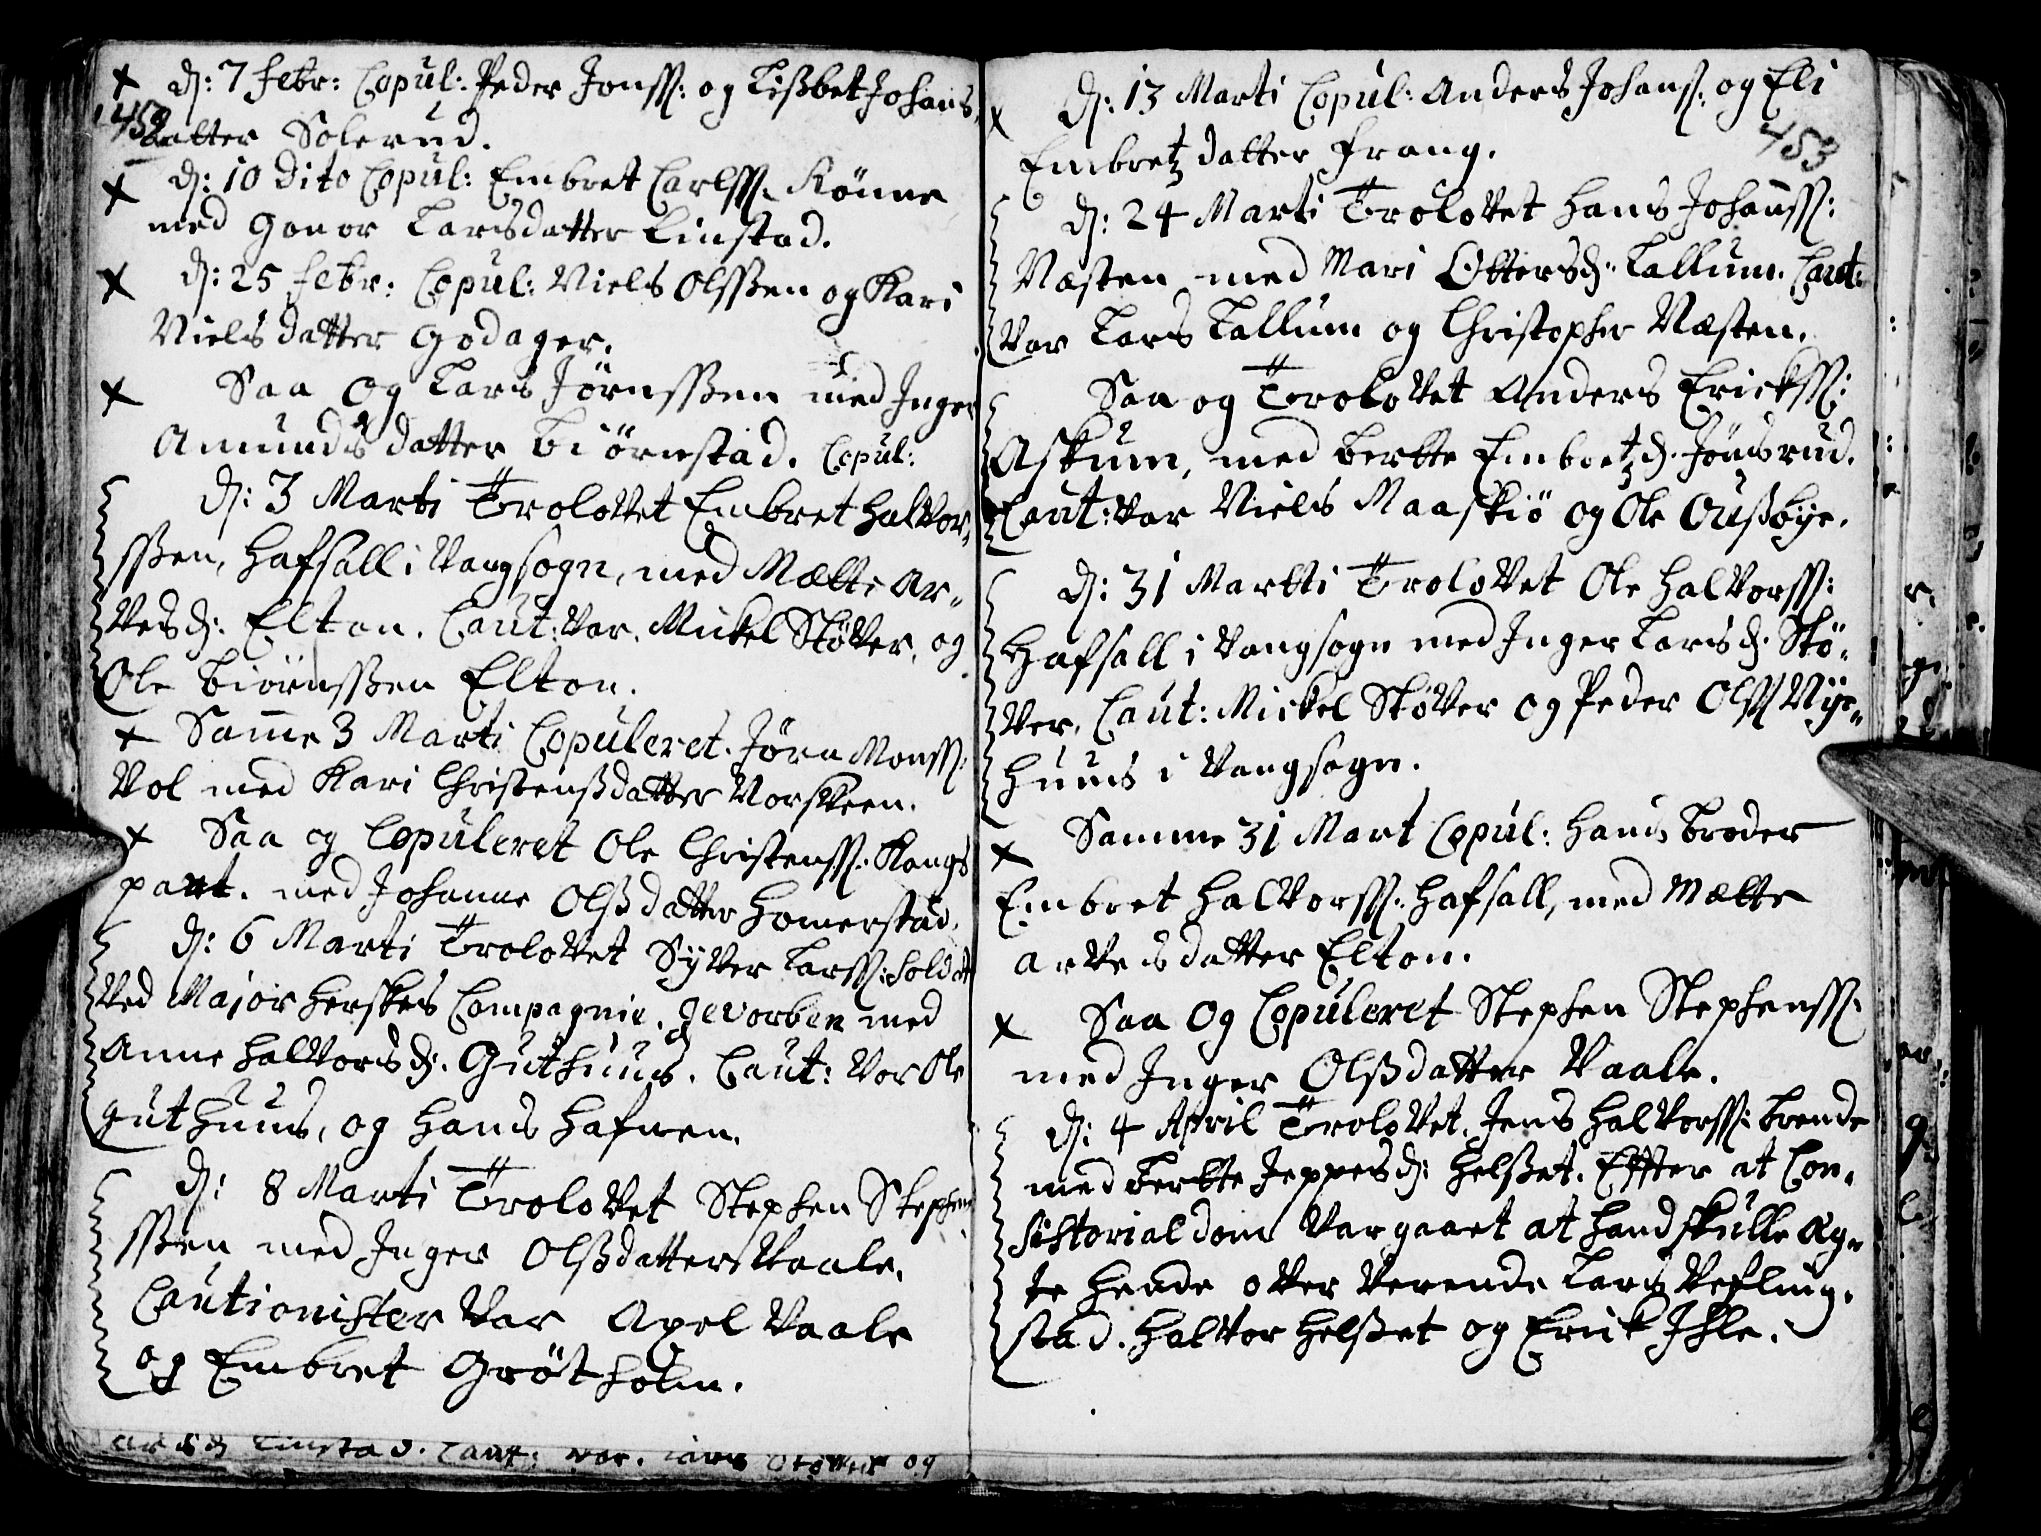 d: 7 Febr: Copul: Peder Jonss: og Lisbet Johans
452
datter Solerud.
d: 10 Dito Copul: Embret Carlss: Rönne
med Gonor Larsdatter Linstad.
d: 25 Febr: Copul: Niels Olssen og Kari
Nielsdatter Godager.
Saa og Lars Jörnssen med Inger
Amundsdatter Biörnstad. Copul:
d: 3 Marti Trolovet Embret Halvor-
ssen, Hafsall i Vangsogn, med Mætte Ar-
vesd: Elton. Caut: var. Mickel Stöver, og
Ole Biörnssen Elton.
Samme 3 Marti Copuleret. Jörn Monss:
Vol med Kari Christensdatter Vorskeen.
Saa og Copuleret Ole Christenss: Kongs
part. med Johanne Olsdatter Homerstad.
d: 6 Marti Trolovet Syver Larss: Soldat
ved Major Herskes Compagnie. gevorben med
Anne Halvorsd: Guthuus. Caut: var Ole
Guthuus, og Hans Hafnen.
d: 8 Marti Trolovet Stephen Stephen
ssen med Inger Olsdatter Vaale.
Cautionister var Axel Vaale
og Embret Grötholm.
Linstad. Caut: var. Lars Stöver og
d: 13 Marti Copul: Anders Johans: og Eli
453
Embretzdatter Frang.
d: 24 Marti Trolovet Hans Johanss:
Næsten med Mari Ottersd: Tallum. Caut:
var Lars Tallum og Christopher Næsten.
Saa og Trolovet Anders Erickss:
Askum, med Bertte Embretzd. Jönsrud.
Caut: var Niels Maaskiö og Ole Ousbye.
d: 31 Martti Trolovet Ole Halvorss:
Hafsall i Vangsogn med Inger Larsd: Stö-
ver. Caut: Mickel Stöver og Peder Olss Nye-
huus i Vangsogn.
Samme 31 Mart Copul: Hans Broder
Embret Halvorss: Hafsall, med Mætte
Arvesdatter Elton.
Saa og Copuleret Stephen Stephenss:
med Inger Olsdatter Vaale.
d: 4 April Trolovet. Jens Halvorss: Brende
med Bertte Jeppesd: Helset. Effter at Con-
sistorial dom var gaaet at Hand skulle æg-
te Hende oververende Lars Vesling-
stad. Halvor Helset og Erick Ihle.